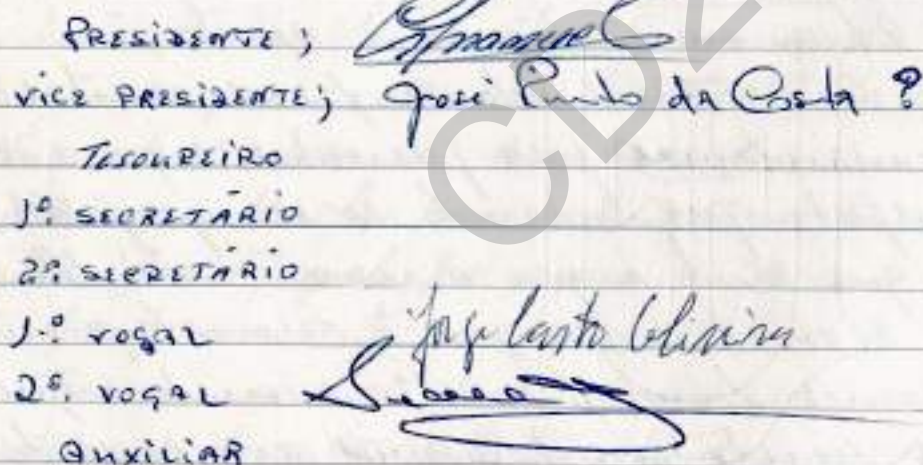 PRESIDENTE;
VICE PRESIDENTE; José Pinto da Costa ?
TESOUREIRO
1º. SECRETÁRIO
2º. SECRETÁRIO
1.º VOGAL Jorge Castro Oliveira
2º. VOGAL
AUXILIAR
CDZ